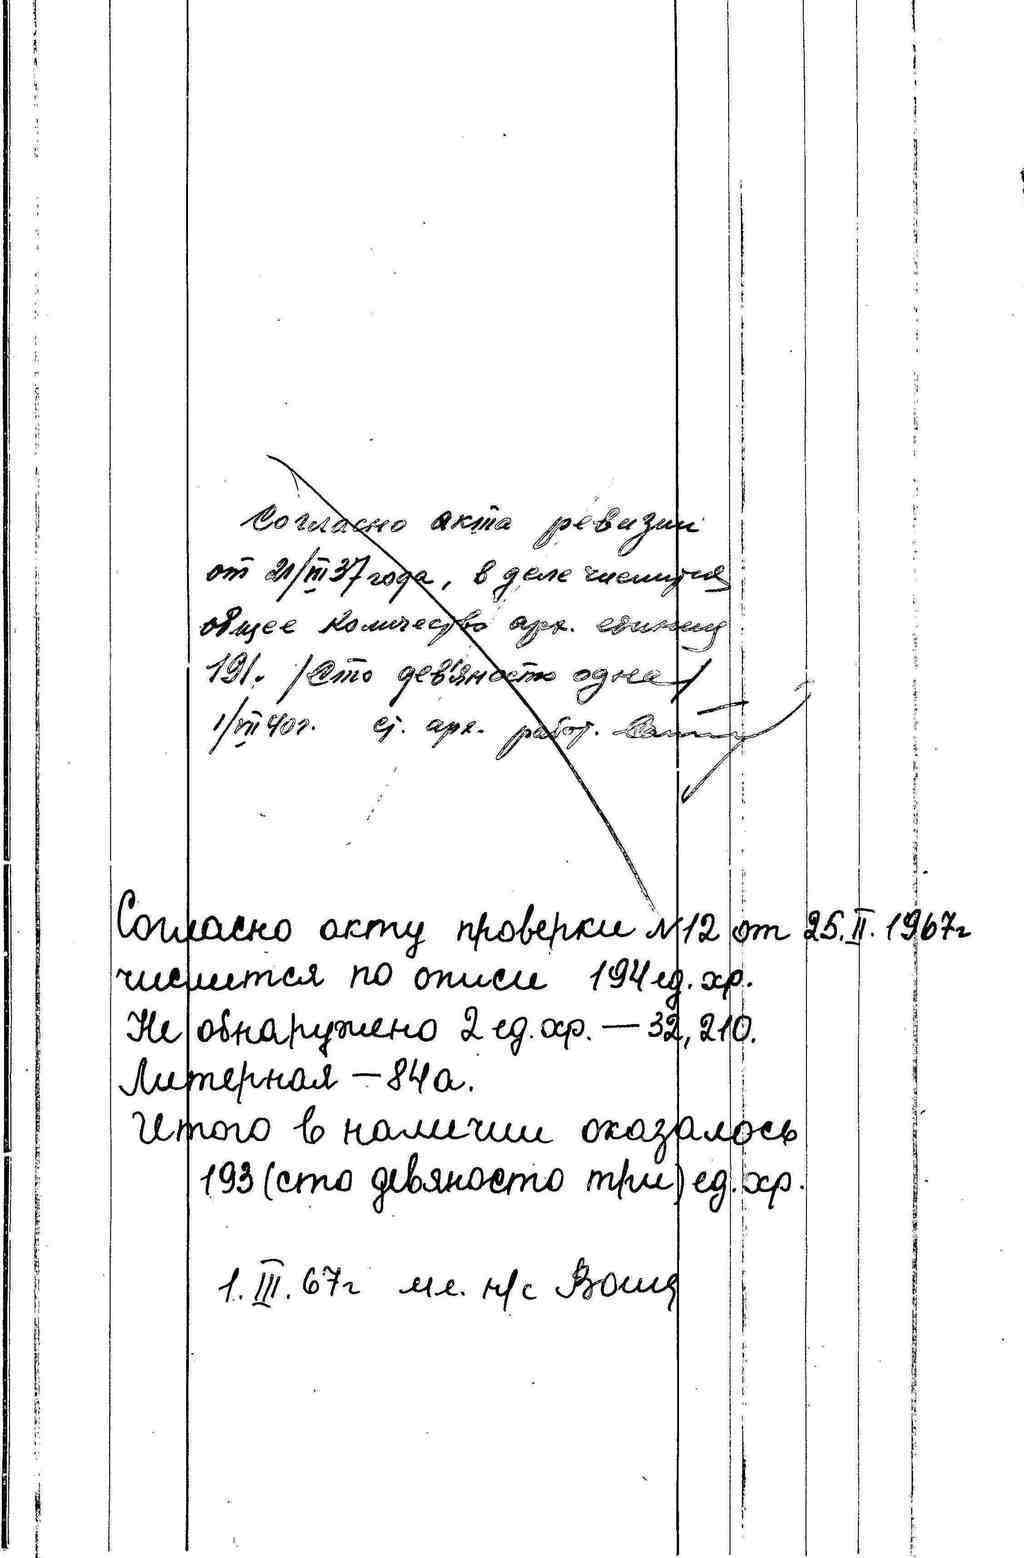 Согласно акта ревизии
от 21/III 37 года, в деле числится
общее количество арх. единиц
191. /Сто дев'яносто одна/
1/VII 40г. ст. арх. работ.
Согласно акту проверки №12 от 25.II.1967г
числится по описи 194 ед. хр.
Не обнаружено 2 ед. хр. — 32, 210.
Литерная — 84а.
Итого в наличии оказалось
193 (сто девяносто три) ед. хр.
1.III.67г мл. н/с